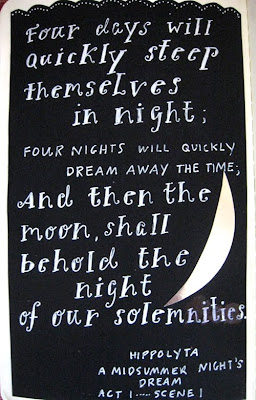 Four days will
quickly steep
themselves
in night;
FOUR NIGHTS WILL QUICKLY
DREAM AWAY THE TIME;
And then the
moon, shall
behold the
night
of our solemnities.
HIPPOLYTA
A MIDSUMMER NIGHT'S
DREAM
ACT I ..... SCENE I